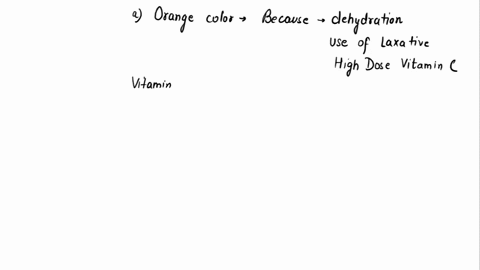 a) Orange color → Because → dehydration
use of Laxative
High Dose Vitamin C
Vitamin